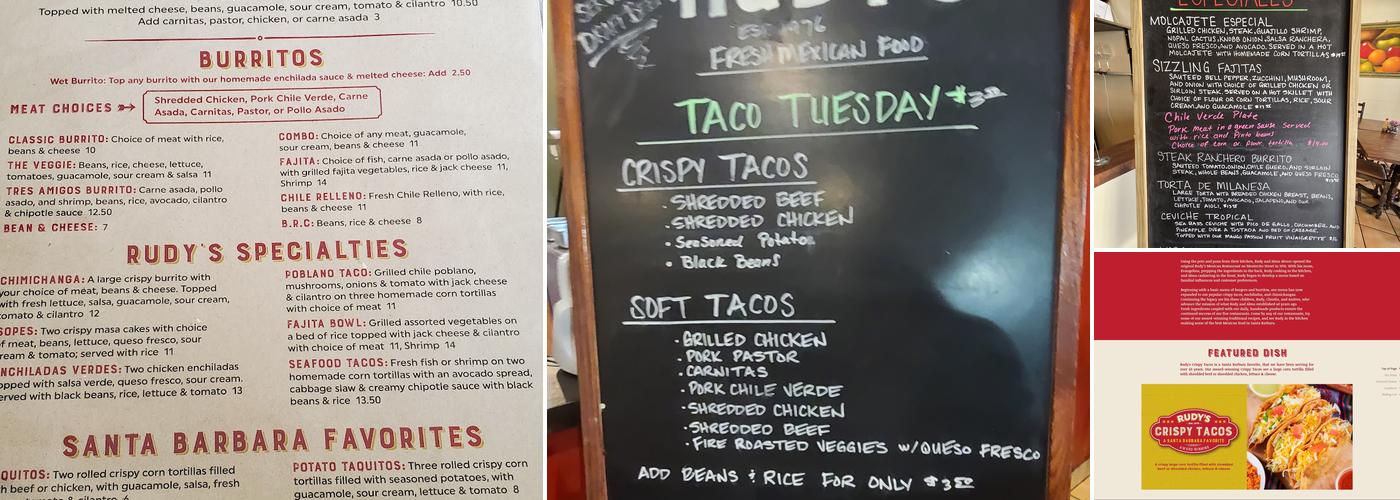 Topped with melted cheese, beans, guacamole, sour cream, tomato & cilantro 10.50
Add carnitas, pastor, chicken, or carne asada 3
BURRITOS
Wet Burrito: Top any burrito with our homemade enchilada sauce & melted cheese: Add 2.50
MEAT CHOICES
Shredded Chicken, Pork Chile Verde, Carne
Asada, Carnitas, Pastor, or Pollo Asado
CLASSIC BURRITO: Choice of meat with rice,
beans & cheese 10
THE VEGGIE: Beans, rice, cheese, lettuce,
tomatoes, guacamole, sour cream & salsa 11
TRES AMIGOS BURRITO: Carne asada, pollo
asado, and shrimp, beans, rice, avocado, cilantro
& chipotle sauce 12.50
BEAN & CHEESE: 7
COMBO: Choice of any meat, guacamole,
sour cream, beans & cheese 11
FAJITA: Choice of fish, carne asada or pollo asado,
with grilled fajita vegetables, rice & jack cheese 11,
Shrimp 14
CHILE RELLENO: Fresh Chile Relleno, with rice,
beans & cheese 11
B.R.C: Beans, rice & cheese 8
RUDY'S SPECIALTIES
CHIMICHANGA: A large crispy burrito with
your choice of meat, beans & cheese. Topped
with fresh lettuce, salsa, guacamole, sour cream,
tomato & cilantro 12
SOPES: Two crispy masa cakes with choice
of meat, beans, lettuce, queso fresco, sour
cream & tomato; served with rice 11
ENCHILADAS VERDES: Two chicken enchiladas
topped with salsa verde, queso fresco, sour cream.
served with black beans, rice, lettuce & tomato 13
POBLANO TACO: Grilled chile poblano,
mushrooms, onions & tomato with jack cheese
& cilantro on three homemade corn tortillas
with choice of meat 11
FAJITA BOWL: Grilled assorted vegetables on
a bed of rice topped with jack cheese & cilantro
with choice of meat 11, Shrimp 14
SEAFOOD TACOS: Fresh fish or shrimp on two
homemade corn tortillas with an avocado spread,
cabbage slaw & creamy chipotle sauce with black
beans & rice 13.50
SANTA BARBARA FAVORITES
QUITOS: Two rolled crispy corn tortillas filled
beef or chicken, with guacamole, salsa, fresh
tomato & cilantro 6
POTATO TAQUITOS: Three rolled crispy corn
tortillas filled with seasoned potatoes, with
guacamole, sour cream, lettuce & tomato 8
EST 1976
FRESH MEXICAN FOOD
TACO TUESDAY $3.00
CRISPY TACOS
· SHREDDED BEEF
· SHREDDED CHICKEN
· Seasoned Potatoe
· Black Beans
SOFT TACOS
· GRILLED CHICKEN
· PORK PASTOR
· CARNITAS
· PORK CHILE VERDE
· SHREDDED CHICKEN
· SHREDDED BEEF
· FIRE ROASTED VEGGIES W/QUESO FRESCO
ADD BEANS & RICE FOR ONLY $3.50
ESPECIALES
MOLCAJETE ESPECIAL
GRILLED CHICKEN, STEAK, GUAJILLO SHRIMP,
NOPAL CACTUS, KNOBB ONION, SALSA RANCHERA,
QUESO FRESCO, AND AVOCADO. SERVED IN A HOT
MOLCAJETE WITH HOMEMADE CORN TORTILLAS
SIZZLING FAJITAS
SAUTEED BELL PEPPER, ZUCCHINI, MUSHROOM,
AND ONION WITH CHOICE OF GRILLED CHICKEN OR
SIRLOIN STEAK. SERVED ON A HOT SKILLET WITH
CHOICE OF FLOUR OR CORN TORTILLAS, RICE, SOUR
CREAM, AND GUACAMOLE
Chile Verde Plate
Pork meat in a green sauce. Served
with rice and Pinto beans
Choice of corn or flour tortilla
STEAK RANCHERO BURRITO
SAUTEED TOMATO, ONION, CHILE GUERO, AND SIRLOIN
STEAK, WHOLE BEANS, GUACAMOLE, AND QUESO FRESCO
TORTA DE MILANESA
LARGE TORTA WITH BREADED CHICKEN BREAST, BEANS,
LETTUCE, TOMATO, AVOCADO, JALAPENO, AND OUR
CHIPOTLE AIOLI
CEVICHE TROPICAL
SEA BASS CEVICHE WITH PICO DE GALLO, CUCUMBER, AND
PINEAPPLE OVER A TOSTADA AND BED OF CABBAGE.
TOPPED WITH OUR MANGO PASSION FRUIT VINAIGRETTE
FEATURED DISH
Rudy's Crispy Tacos is a Santa Barbara favorite, that we have been serving for
over 40 years. Our award-winning Crispy Tacos are a large corn tortilla filled
with shredded beef or shredded chicken, lettuce & cheese.
RUDY'S
CRISPY TACOS
A SANTA BARBARA FAVORITE
A crispy large corn tortilla filled with shredded
beef or shredded chicken, lettuce & cheese